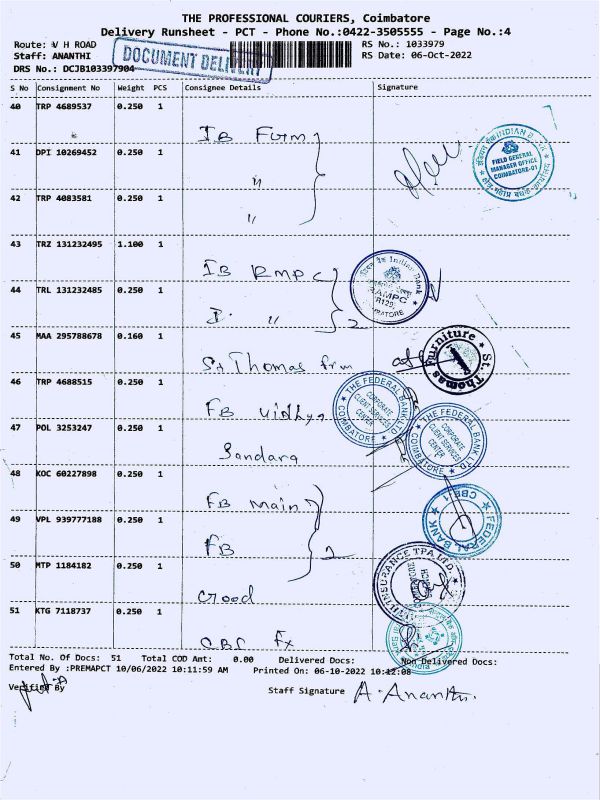 THE PROFESSIONAL COURIERS, Coimbatore
Delivery Runsheet - PCT - Phone No.:0422-3505555 - Page No.:4
Route: V H ROAD
RS No.: 1033979
Staff: ANANTHI
RS Date: 06-Oct-2022
DRS No.: DCJB103397904
DOCUMENT DELIVERY
S No Consignment No Weight PCS Consignee Details Signature
40 TRP 4689537 0.250 1 IB Form
41 DPI 10269452 0.250 1 "
42 TRP 4083581 0.250 1 "
INDIAN
FIELD GENERAL
MANAGER OFFICE
COIMBATORE-01
43 TRZ 131232495 1.100 1 IB RMPC
44 TRL 131232485 0.250 1 I. " 2
Indian Bank
RAMPC
45 MAA 295788678 0.160 1 St Thomas frm
St. Thomas Furniture
46 TRP 4688515 0.250 1 FB Vidhya
THE FEDERAL BANK LTD
CORPORATE
CLIENT SERVICES
CENTER
COIMBATORE
47 POL 3253247 0.250 1 Sandara
THE FEDERAL BANK LTD
CORPORATE
CLIENT SERVICES
CENTER
COIMBATORE
48 KOC 60227898 0.250 1 FB main
49 VPL 939777188 0.250 1 FB 2
FEDERAL BANK
50 MTP 1184182 0.250 1 Good
INSURANCE TPA LTD.
51 KTG 7118737 0.250 1 CBS Fx
Total No. Of Docs: 51 Total COD Amt: 0.00 Delivered Docs: Non Delivered Docs:
Entered By :PREMAPCT 10/06/2022 10:11:59 AM Printed On: 06-10-2022 10:12:08
Verified By
Staff Signature A. Ananthi.